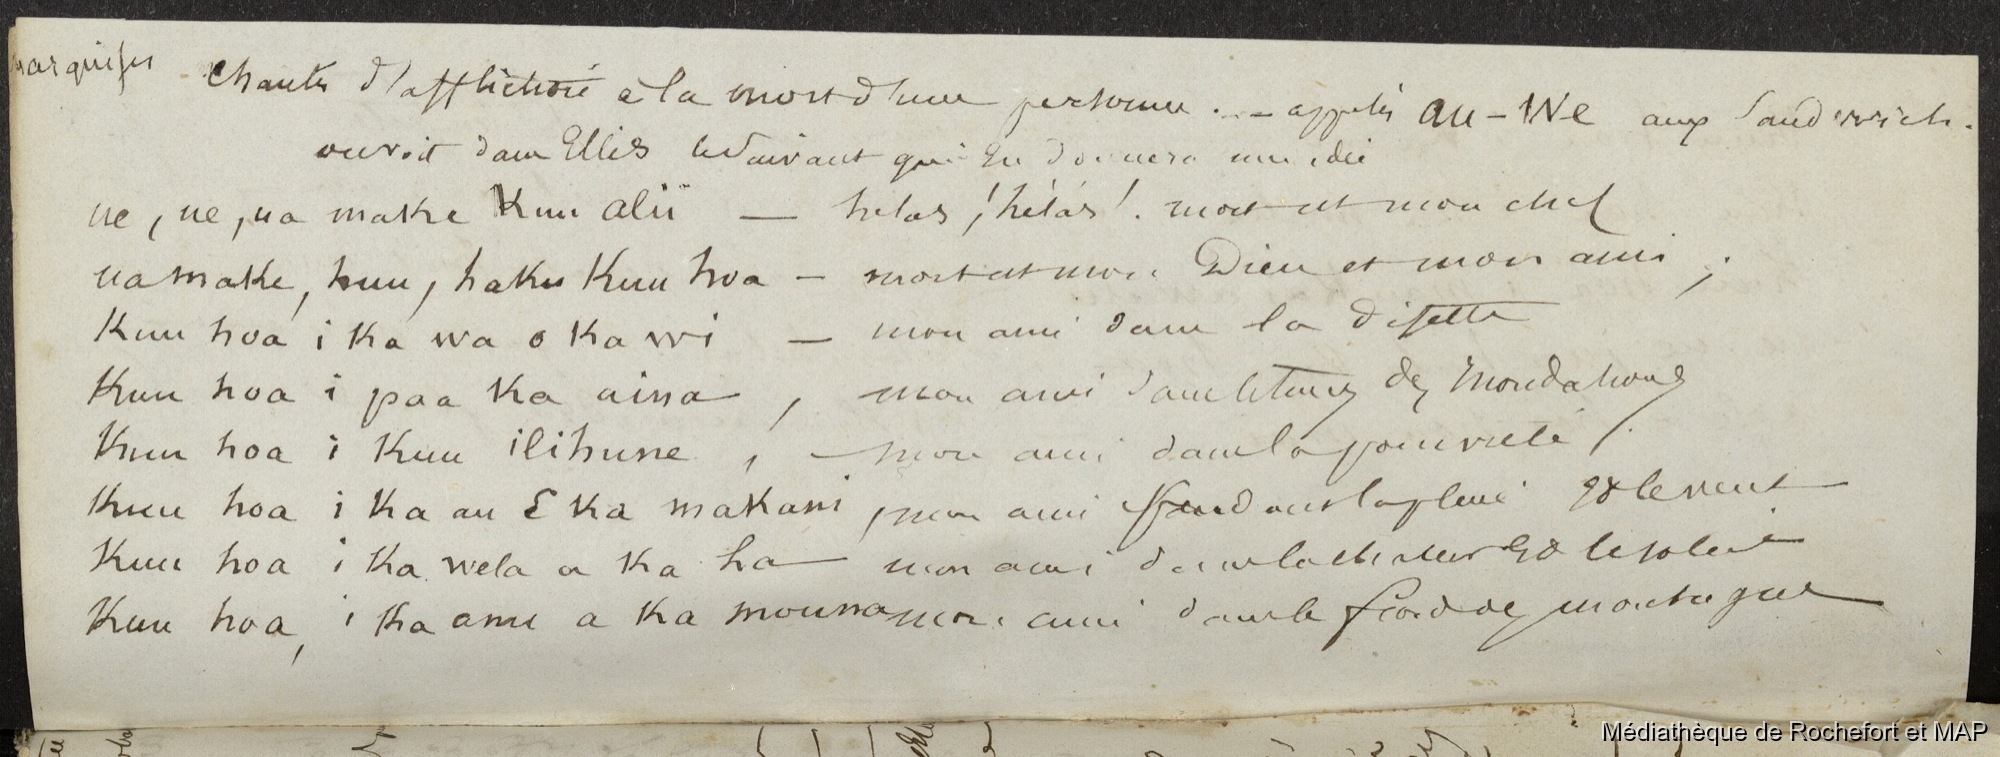 marquises Chants d'affliction à la mort d'une personne . — appelés au-we aux Sandwich.
on voit dans Ellis le suivant qui en donnera une idée
ue, ue, ua make Kuu alii — hélas ! hélas ! . mort est mon chef
ua make, kuu, haku Kuu hoa — mort est mon Dieu et mon ami ;
Kuu hoa i Ka wa o Ka wi — mon ami dans la disette
Kuu hoa i paa Ka aina , mon ami dans le temps des
Kuu hoa i Kuu ilihune , — mon ami dans la pauvreté ,
Kuu hoa i Ka au E Ka makani , mon ami dans la pluie et le vent
Kuu hoa i Ka wela a Ka la — mon ami dans la chaleur et le soleil
Kuu hoa, i Ka anu a Ka mouna mon ami dans le froid de montagne
Médiathèque de Rochefort et MAP